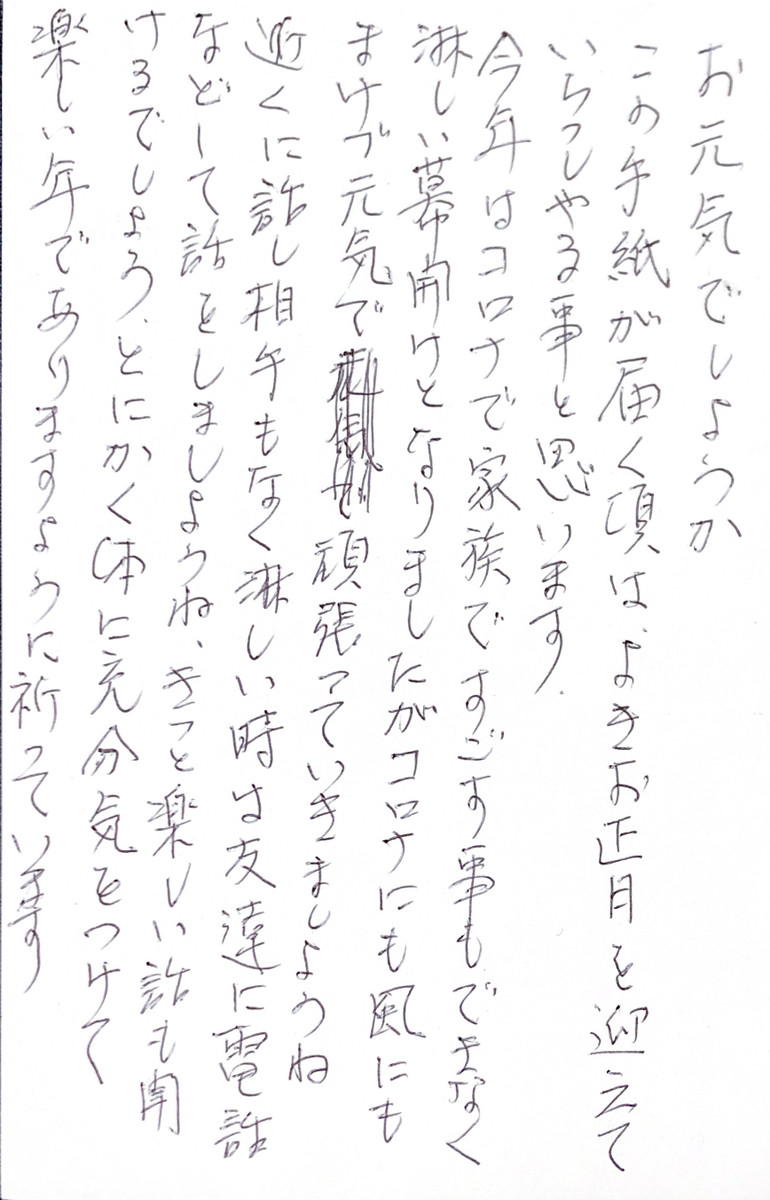 お元気でしようか
この手紙が届く頃は、よきお正月を迎えて
いらつしやる事と思います.
今年はコロナで家族ですごす事もできなく
淋しい幕開けとなりましたがコロナにも風にも
まけづ元気で頑張つていきましようね
近くに話し相手もなく淋しい時は友達に電話
などして話をしましようね、きつと楽しい話も聞
けるでしよう、とにかく体に充分気をつけて
楽しい年でありますように祈つています